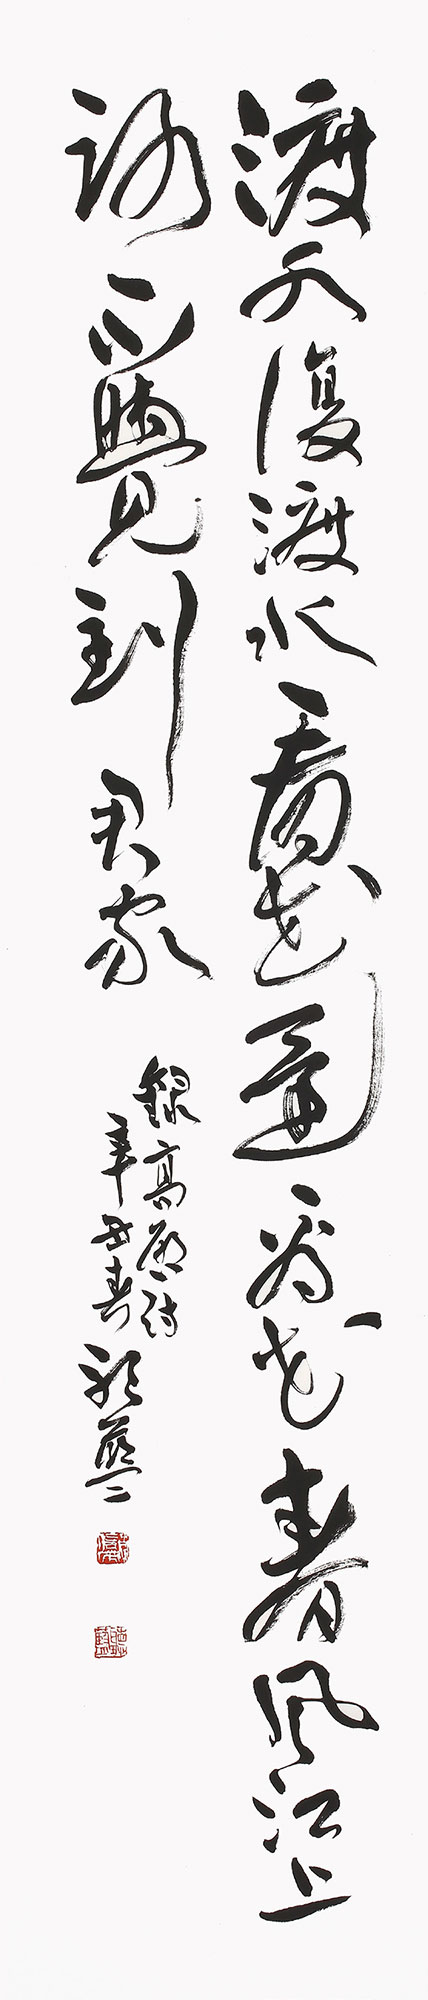 渡水復渡水看花還看花春風江上
路不覺到君家
錄高啟詩
辛丑春